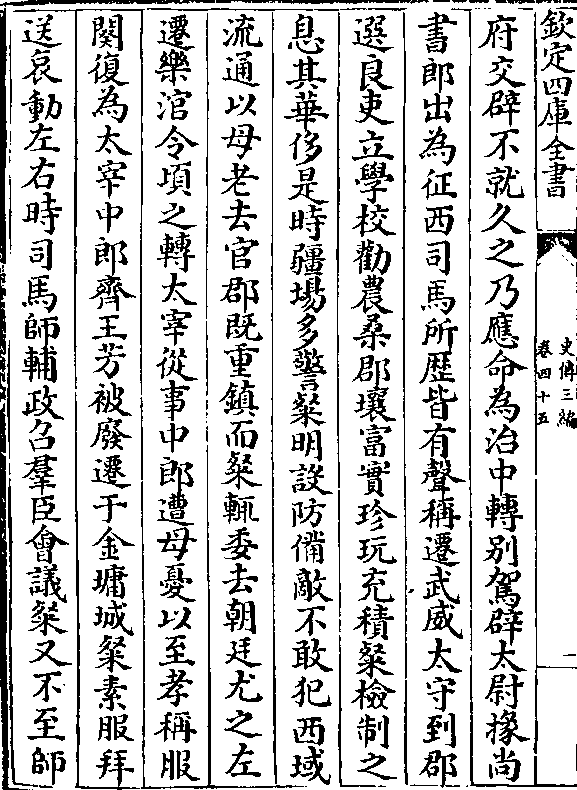 欽定四庫全書
史傳三編
卷四十五
一
府交辟不就久之乃應命為治中轉别駕辟太尉掾尚
書郎出為征西司馬所歴皆有聲稱遷武威太守到郡
選良吏立學校勸農桑郡壤富實珍玩充積粲檢制之
息其華侈是時疆場多警粲明設防備敵不敢犯西域
流通以母老去官郡既重鎮而粲輒委去朝廷尤之左
遷樂涫令頃之轉太宰從事中郎遭母憂以至孝稱服
闋復為太宰中郎齊王芳被廢遷于金墉城粲素服拜
送哀動左右時司馬師輔政召羣臣會議粲又不至師